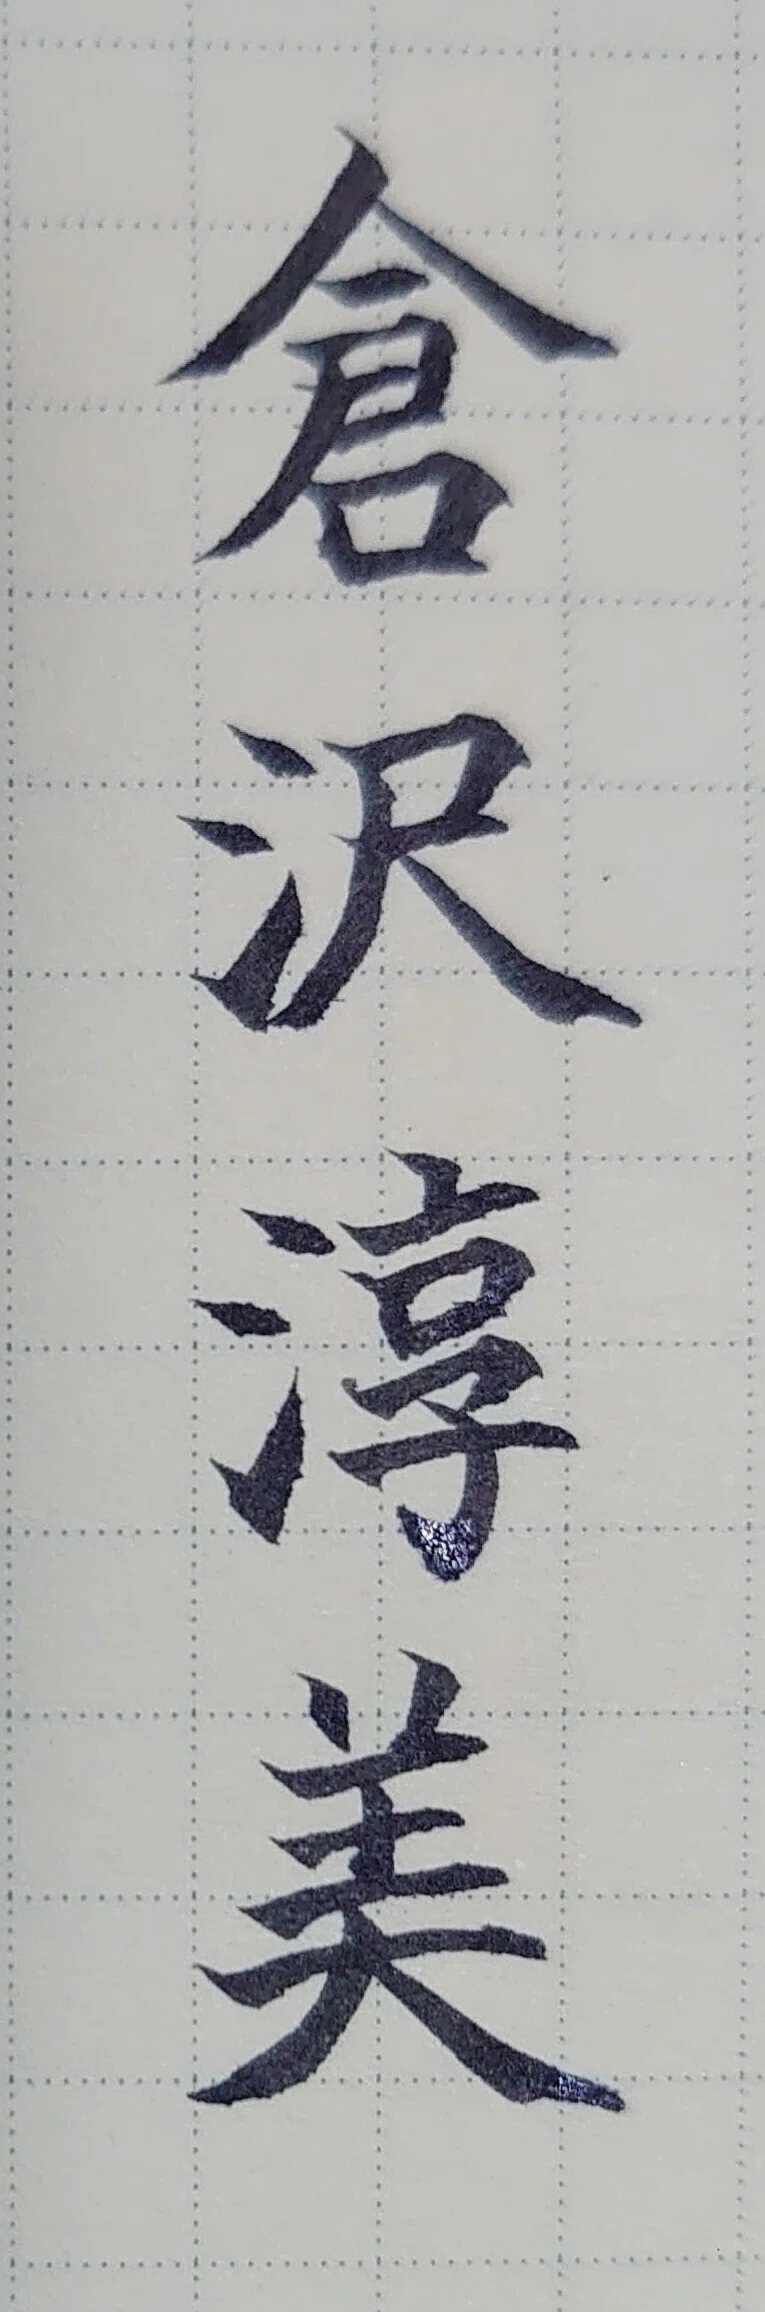 倉沢淳美